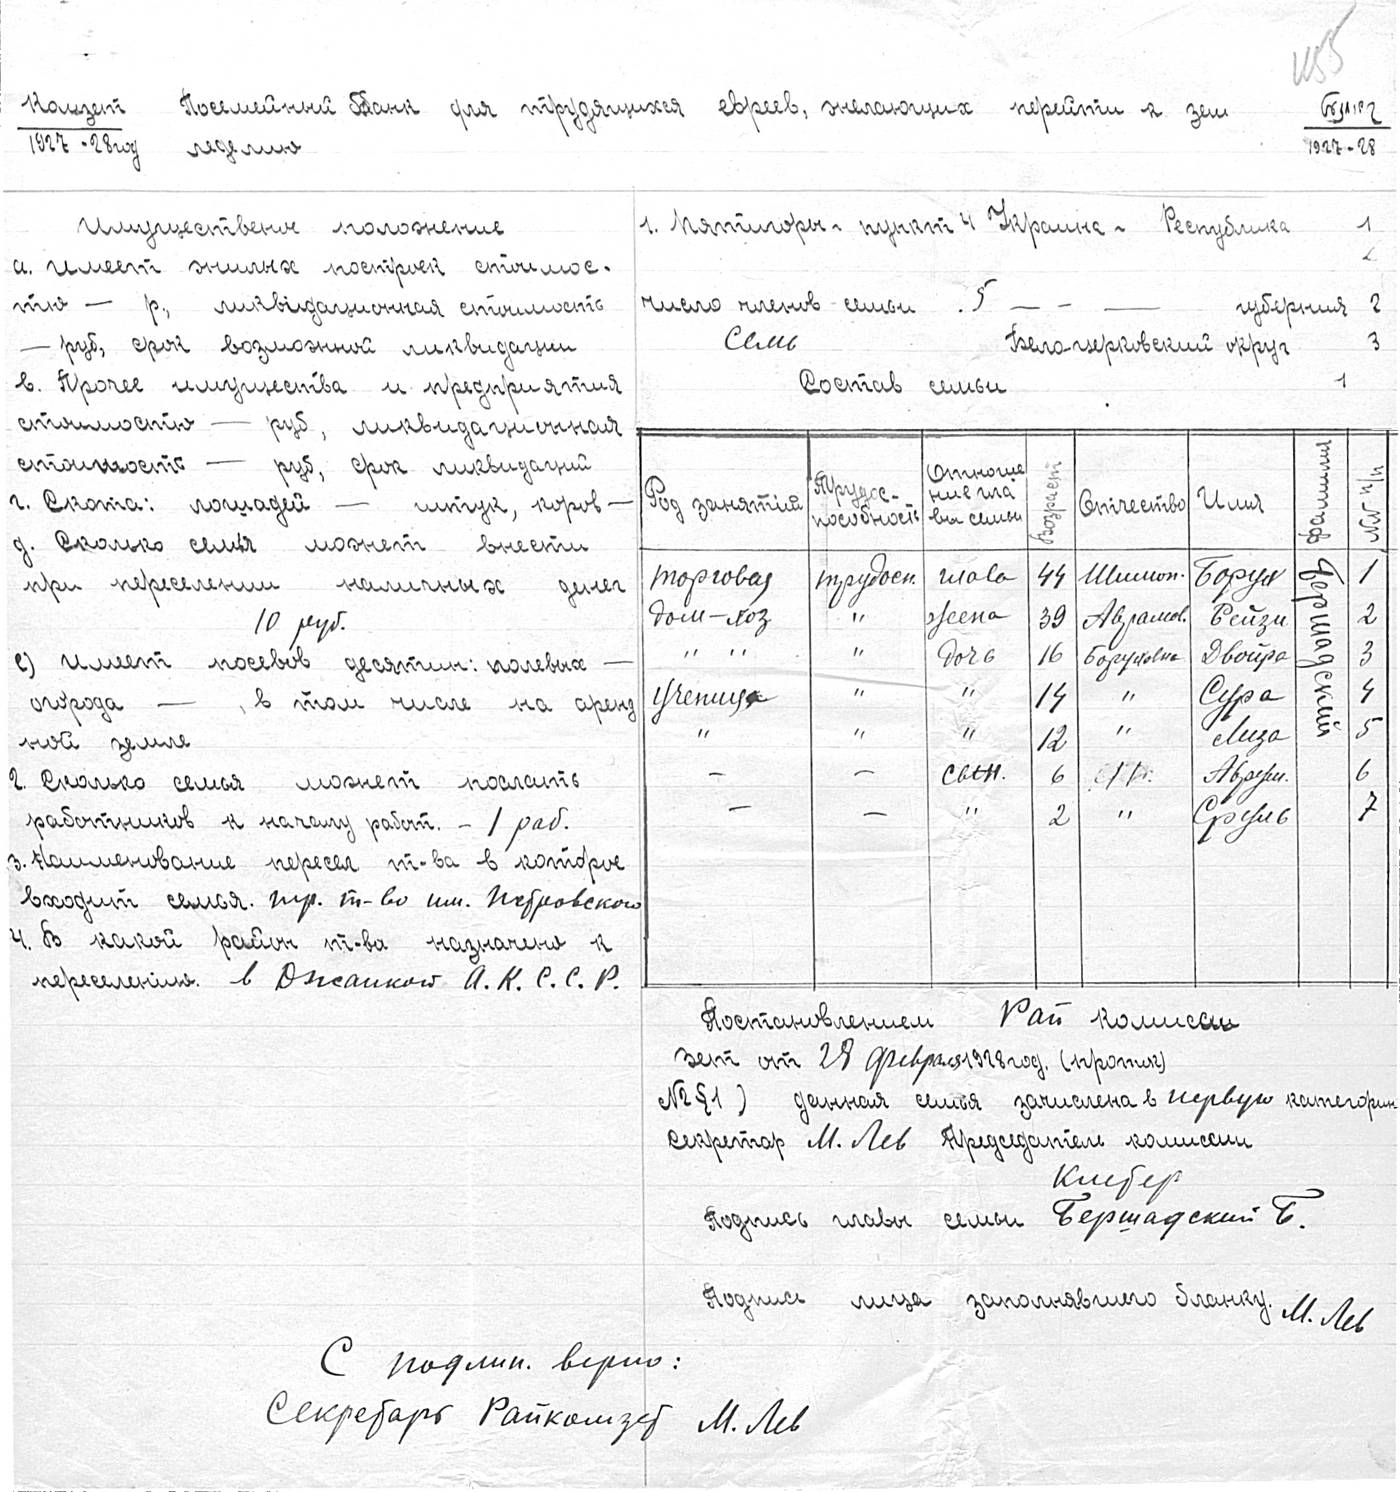 Комзет Посемейный Бланк для трудящихся евреев, желающих перейти к зем
1927-28 год леделию
1927-28
Имущественое положение
а. Имеет жилых построек стоимос-
тю — р., ликвідационная стоимость
— руб, срок возможной ликвидации
в. Прочее имущества и предприятия
стоимостю — руб, ликвидационная
стоимость — руб, срок ликвидаций
г. Скота: лошадей — штук, коров —
д. Сколько семья может внести
при переселении наличных денег
10 руб.
е) Имеет посевов десятин: полевых —
огорода — , в том числе на аренд
ной земле
2. Сколько семья может послать
работников к началу работ. - 1 раб.
3. Наименование пересел т-ва в которое
входит семья. тр. т-во им. Петровского
4. В какой район т-ва назначено к
переселению. в Джанкой А.К.С.С.Р.
1. Пятигоры - пункт 4 Украина - Республика 1
число членов семьи . 5 — - — губерния 2
Семь Бело-церковский округ 3
Состав семьи 1
Род занятій Трудос-пособность Отноше ние гла вы семьи Возраст Отчество Имя фамилия №№ п/п
торговая трудосп. глава 44 Шимон. Борух Бершадский 1
дом-хоз " жена 39 Аврамов. Рейзи 2
" " " дочь 16 Боруховна Двойра 3
ученица " " 14 " Сура 4
" " " 12 " Лиза 5
— — сын. 6 Аврум. 6
— — " 2 " Сруль 7
Постановлением Рай комиссии
зет от 28 февраля 1928 год. (проток)
№ §1) данная семья зачислена в первую категории
Секретар М. Лев Председатель комиссии
Клебер
Подпись главы семьи Бершадский Б.
Подпись лица заполнявшего бланку. М. Лев
С подлин. верно:
Секретарь Райкомзет М. Лев